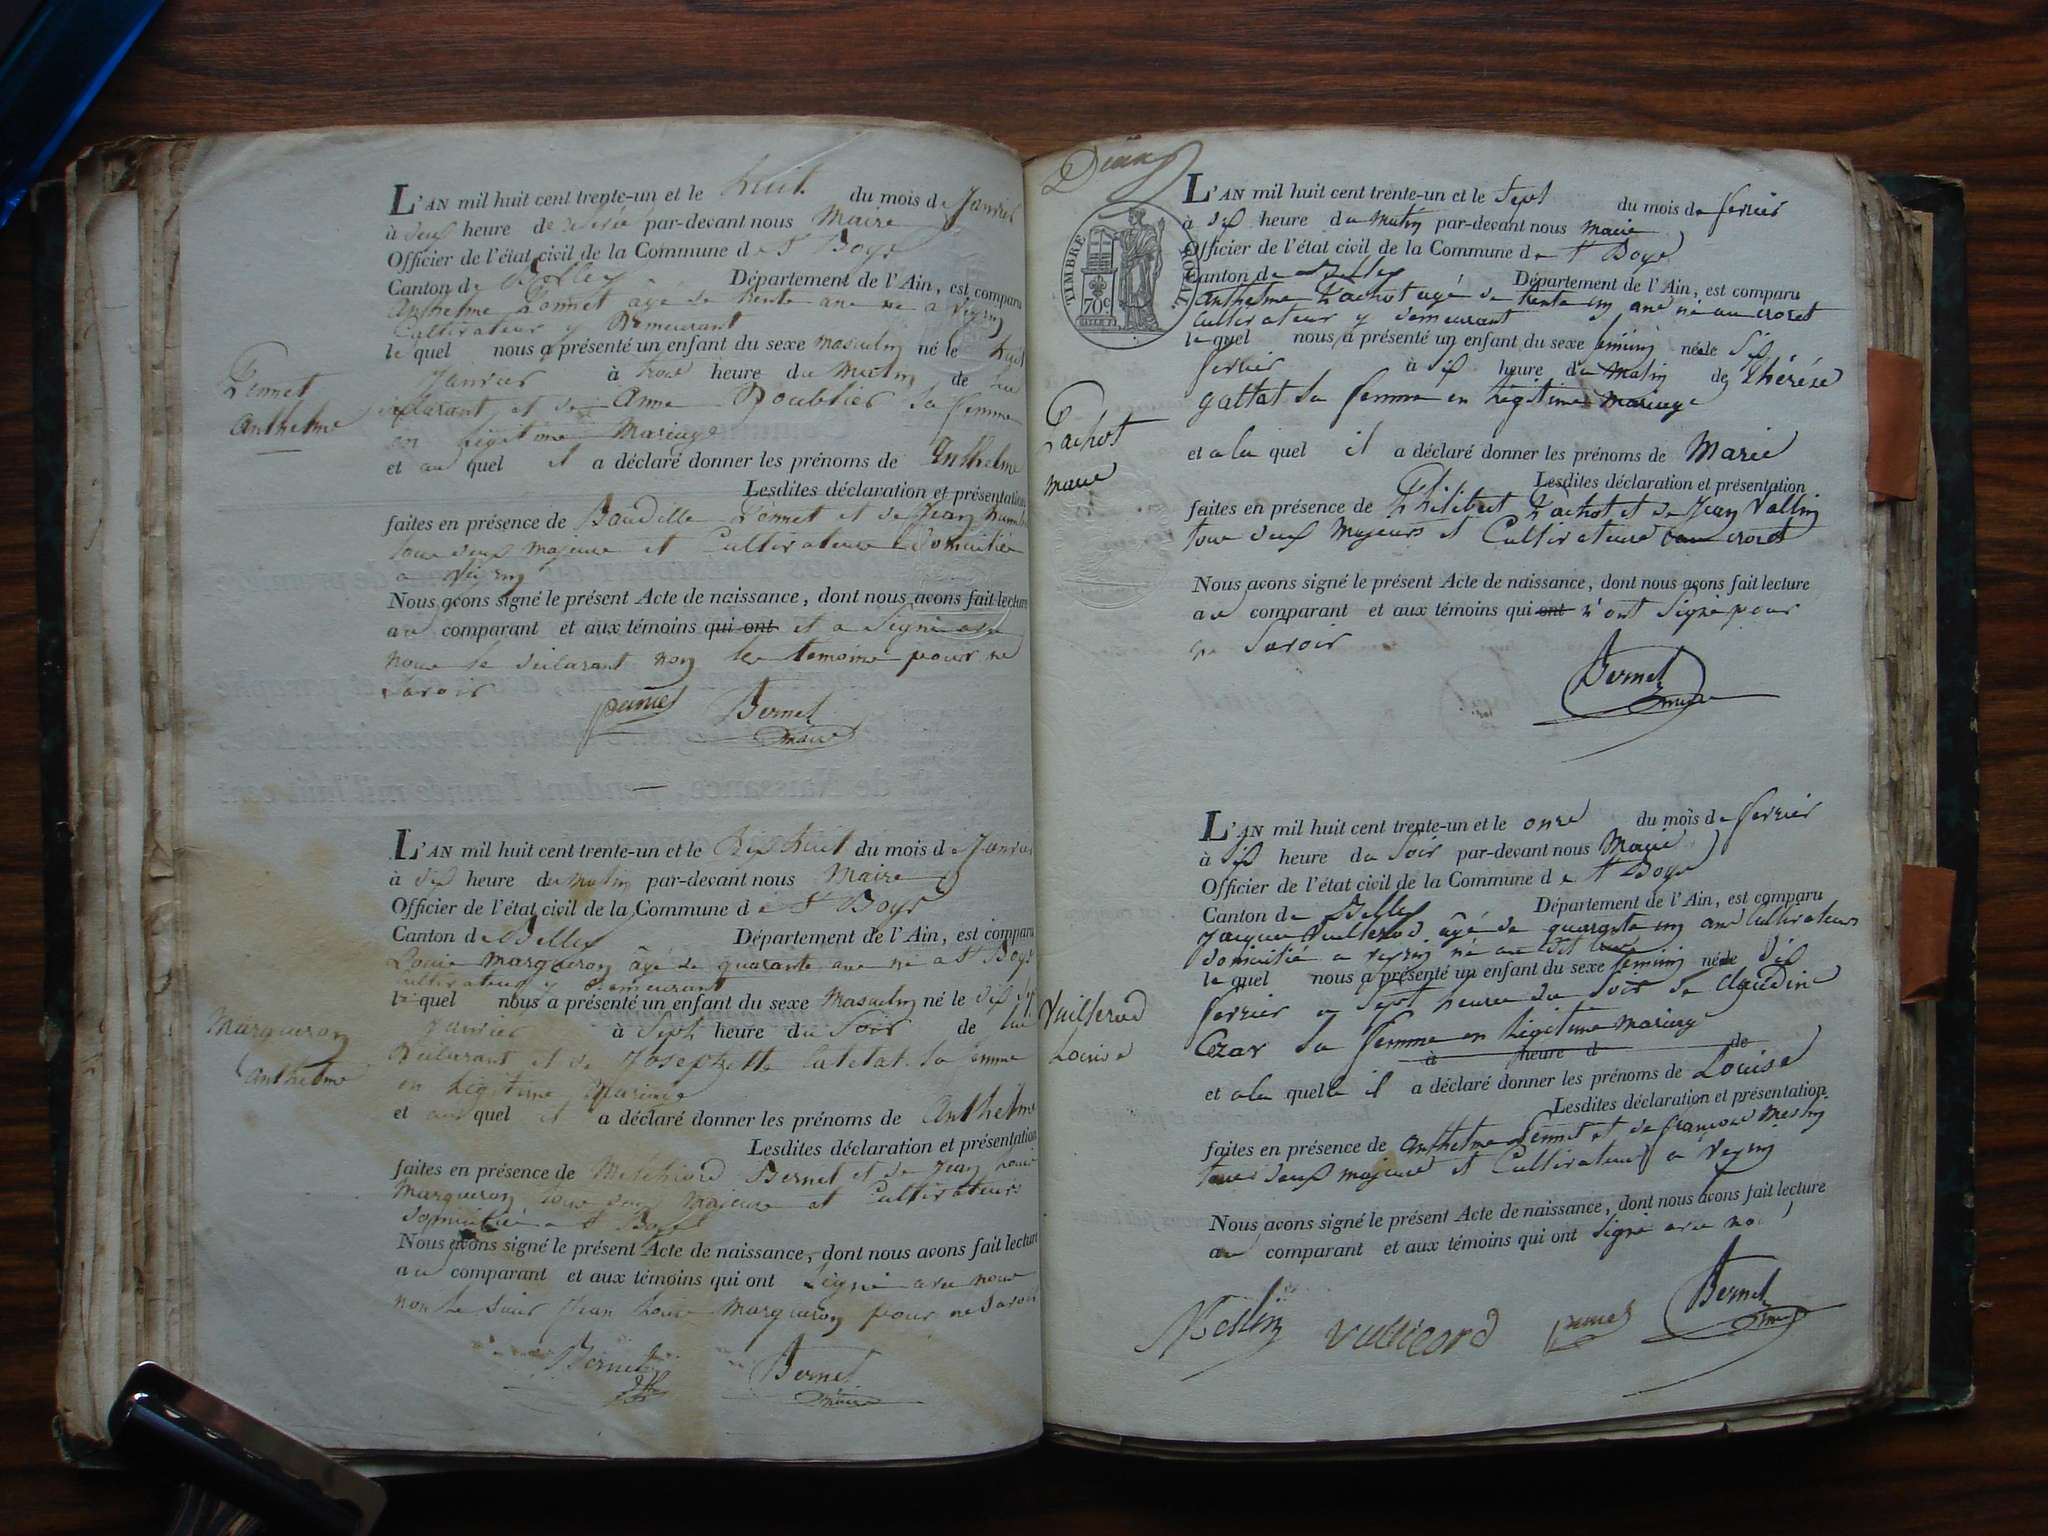 L'AN mil huit cent trente-un et le huit du mois de Janvier
à deux heure de par-devant nous Maire
Officier de l'état civil de la Commune de St Boys
Canton de Belley Département de l'Ain, est comparu
Anthelme âgé de trente ans né à Veyrin
Cultivateur y Demeurant
le quel nous a présenté un enfant du sexe masculin né le huit
Janvier à trois heure du Matin de lui
déclarant et de Anne Roublier sa femme
en légitime Mariage
et au quel il a déclaré donner les prénoms de Anthelme
Lesdites déclaration et présentation
faites en présence de Baudille et de Jean
tous deux majeurs et Cultivateurs Domiciliés
a Veyrin
Nous avons signé le présent Acte de naissance, dont nous avons fait lecture
au comparant et aux témoins qui ont et a Signé avec
nous le déclarant non les temoins pour ne
Savoir
Bernet
maire
Anthelme
L'AN mil huit cent trente-un et le Dix huit du mois de Janvier
à dix heure du matin par-devant nous Maire
Officier de l'état civil de la Commune de St Boys
Canton de Belley Département de l'Ain, est comparu
Louis Marqueron âgé de quarante ans né a St Boys
cultivateur y Demeurant
le quel nous a présenté un enfant du sexe Masculin né le dix sept
Janvier à Sept heure du Soir de lui
Déclarant et de Josephette Catetat sa femme
en légitime Mariage
et au quel il a déclaré donner les prénoms de Anthelme
Lesdites déclaration et présentation
faites en présence de Melchiord Bernet et de Jean Louis
Marqueron tous deux majeurs et Cultivateurs
domiciliés a St Boys
Nous avons signé le présent Acte de naissance, dont nous avons fait lecture
au comparant et aux témoins qui ont Signé avec nous
non le Sieur Jean Louis Marqueron pour ne Savoir
Bernet
Bernet
maire
Marqueron
Anthelme
Deux
TIMBRE ROYAL
70c
L'AN mil huit cent trente-un et le Sept du mois de fevrier
à dix heure du Matin par-devant nous maire
Officier de l'état civil de la Commune de St Boys
Canton de Belley Département de l'Ain, est comparu
Anthelme Pachot agé de trente cinq ans né au croset
cultivateur y demeurant
le quel nous a présenté un enfant du sexe féminin née le Six
fevrier à Six heure du Matin de Thérése
gattat sa femme en legitime Mariage
et a la quel il a déclaré donner les prénoms de Marie
Lesdites déclaration et présentation
faites en présence de Philibert Pachot et de Jean Vallin
tous deux Majeurs et Cultivateurs au croset
Nous avons signé le présent Acte de naissance, dont nous avons fait lecture
au comparant et aux témoins qui ont n'ont Signé pour
ne Savoir
Bernet
maire
Pachot
marie
L'AN mil huit cent trente-un et le onze du mois de fevrier
à Six heure du Soir par-devant nous Maire
Officier de l'état civil de la Commune de St Boys
Canton de Belley Département de l'Ain, est comparu
Jacques Vuillerod âgé de quarante cinq ans Cultivateur
domicilié a veyrin né au dit lieu
le quel nous a présenté un enfant du sexe féminin née le dix
fevrier a Sept heures du Soir de Claudine
Cezar sa femme en légitime mariage
à heure d de
et a la quelle il a déclaré donner les prénoms de Louise
Lesdites déclaration et présentation
faites en présence de Anthelme et de françois Meslin
tous deux majeurs et Cultivateurs a Veyrin
Nous avons signé le présent Acte de naissance, dont nous avons fait lecture
au comparant et aux témoins qui ont Signé avec nous
Meslin Bernet
Vuillerod
Louise